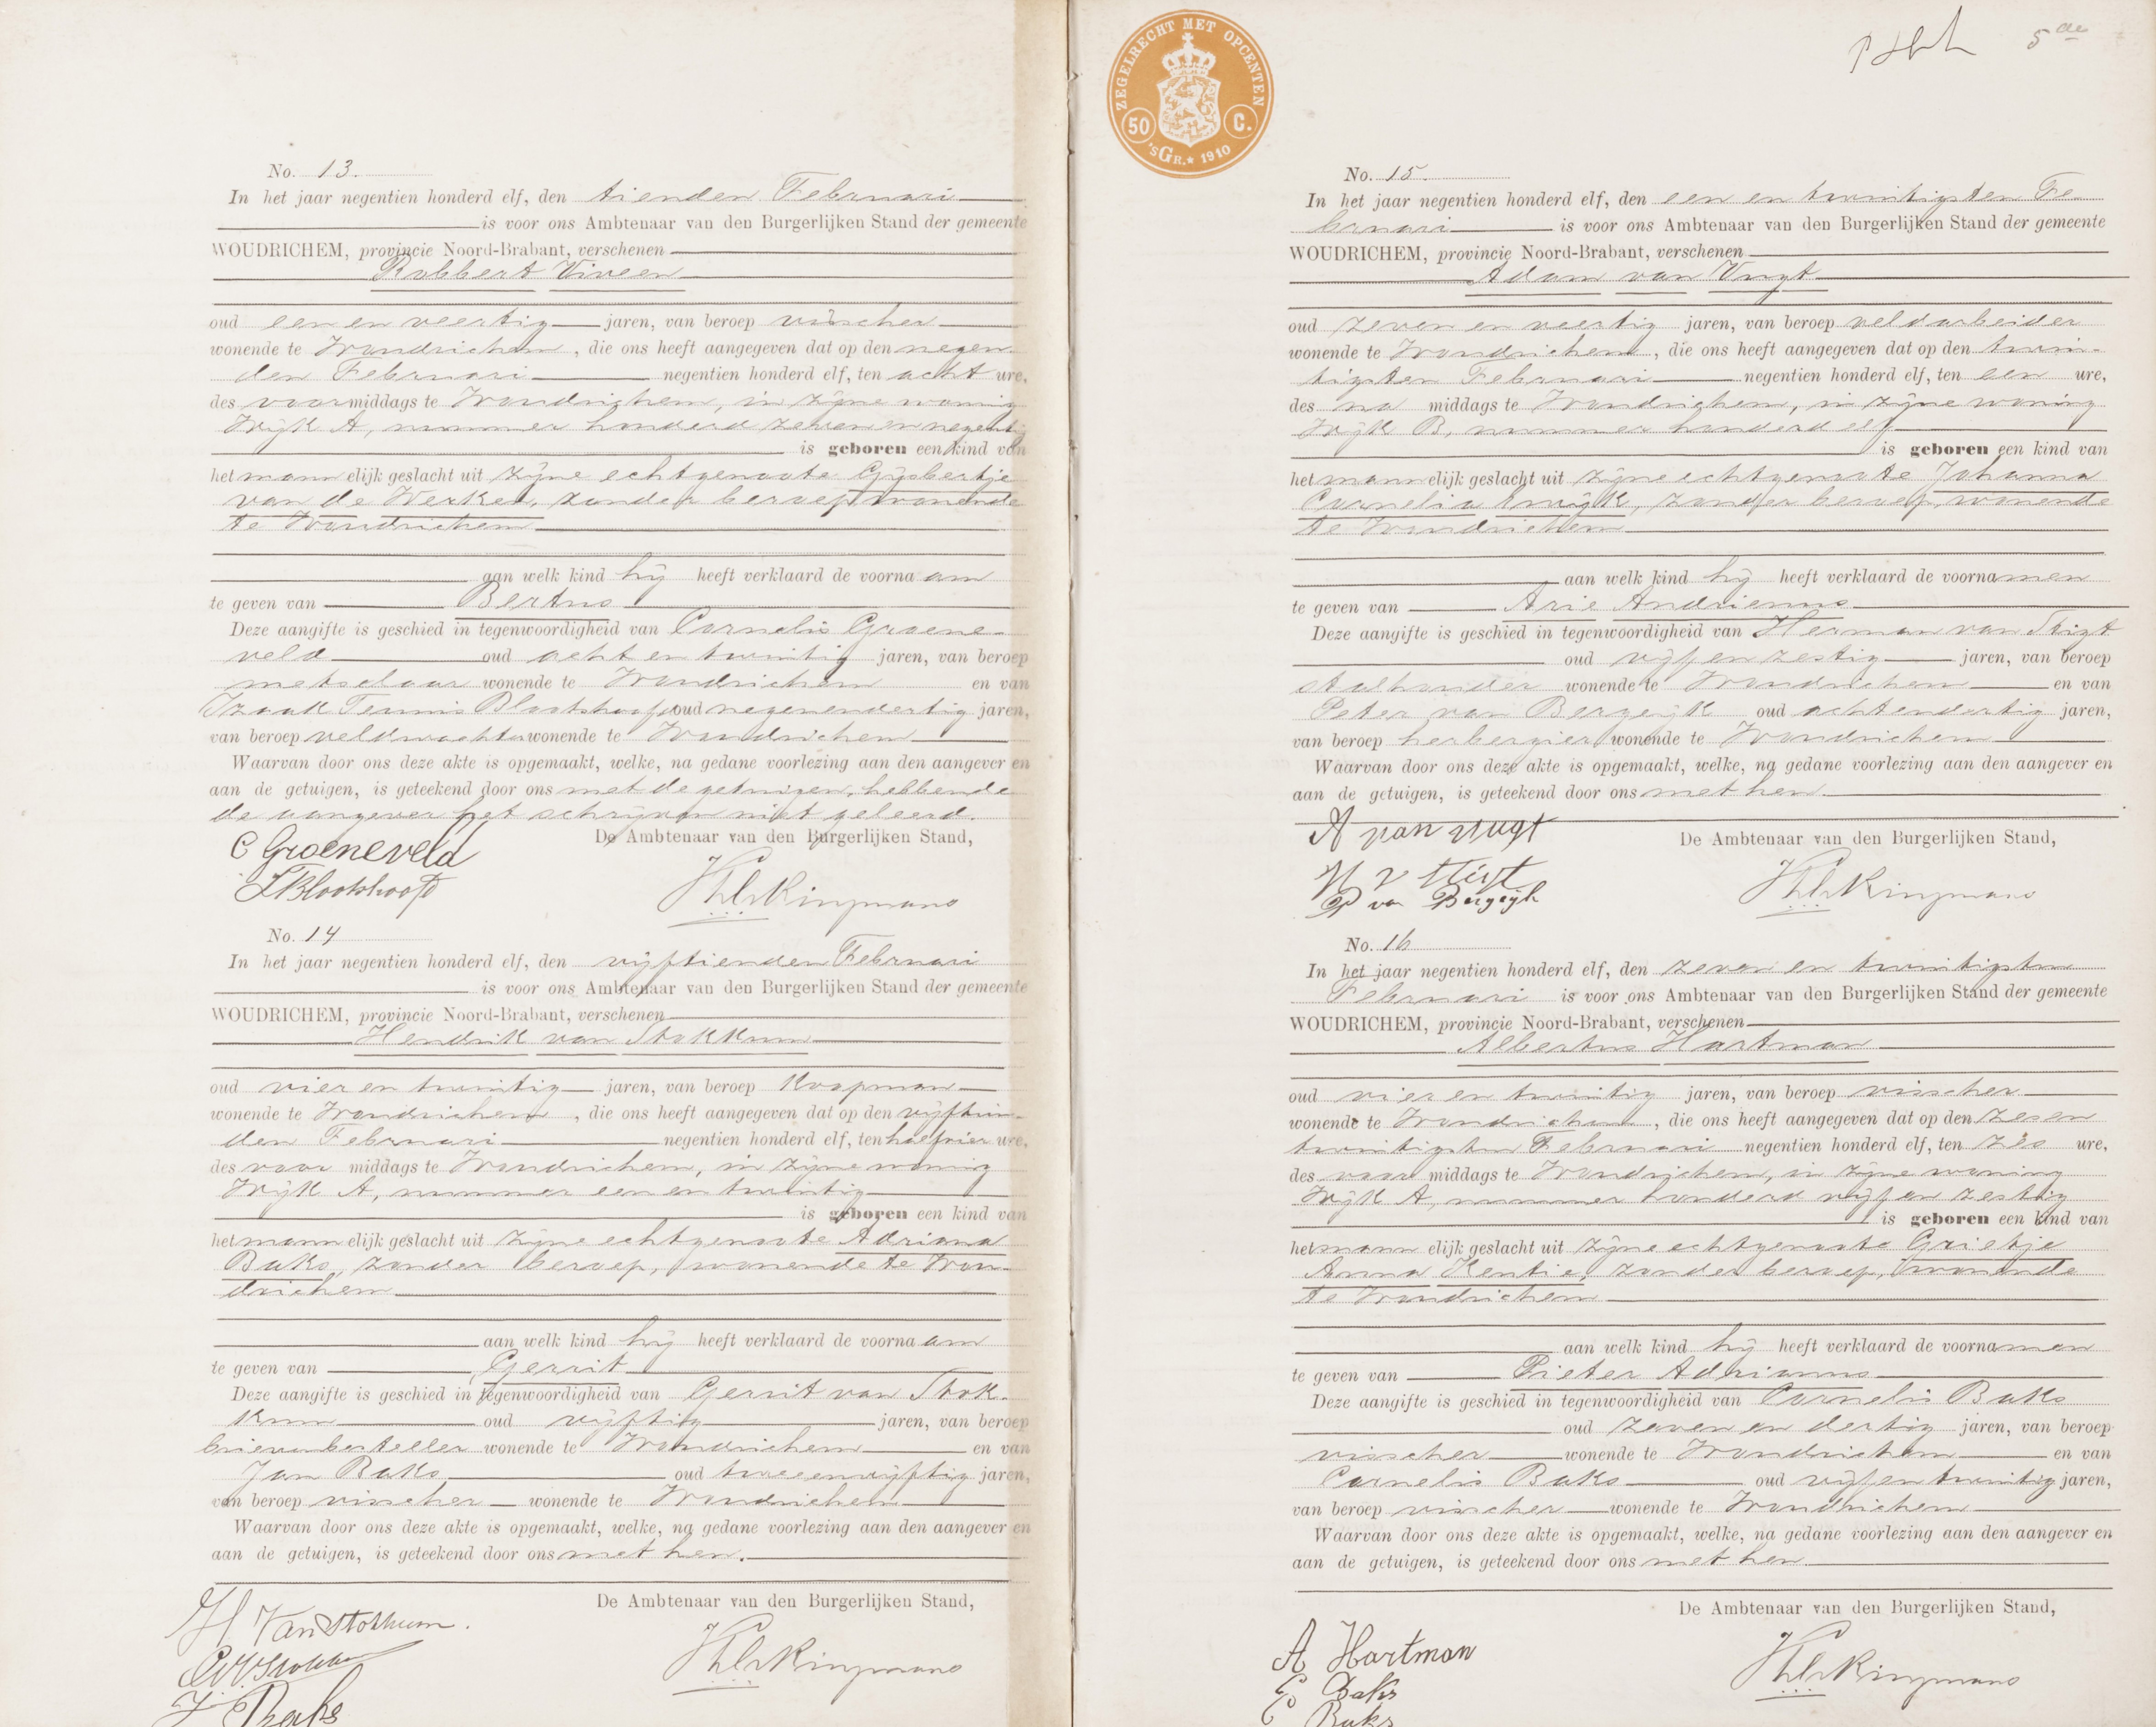 No. 13.
In het jaar negentien honderd elf, den tienden Februari
is voor ons Ambtenaar van den Burgerlijken Stand der gemeente
WOUDRICHEM, provincie Noord-Brabant, verschenen
Robbert Viveen
oud een en veertig jaren, van beroep visscher
wonende te Woudrichem, die ons heeft aangegeven dat op den negen
den Februari negentien honderd elf, ten acht ure,
des voormiddags te Woudrichem, in zijne woning
Wijk A, nummer honderd zeven en negentig
is geboren een kind van
het mannelijk geslacht uit zijne echtgenoote Gijsbertje
van de Werken, zonder beroep, wonende
te Woudrichem
aan welk kind hij heeft verklaard de voornaam
te geven van Bertus
Deze aangifte is geschied in tegenwoordigheid van Cornelis Groene-
veld oud acht en twintig jaren, van beroep
metselaar wonende te Woudrichem en van
Izaak Teunis Blootshoofd oud negenendertig jaren,
van beroep veldwachter wonende te Woudrichem
Waarvan door ons deze akte is opgemaakt, welke, na gedane voorlezing aan den aangever en
aan de getuigen, is geteekend door ons met de getuigen, hebbende
de aangever het schrijven niet geleerd.
De Ambtenaar van den Burgerlijken Stand,
C Groeneveld
Blootshoofd
No. 14
In het jaar negentien honderd elf, den vijftienden Februari
is voor ons Ambtenaar van den Burgerlijken Stand der gemeente
WOUDRICHEM, provincie Noord-Brabant, verschenen
Hendrik van Stokkum
oud vier en twintig jaren, van beroep Koopman
wonende te Woudrichem, die ons heeft aangegeven dat op den vijftien-
den Februari negentien honderd elf, ten half vier ure,
des voor middags te Woudrichem, in zijne woning
Wijk A, nummer een en twintig
is geboren een kind van
het mannelijk geslacht uit zijne echtgenoote Adriana
Baks, zonder beroep, wonende te Wou-
drichem
aan welk kind hij heeft verklaard de voornaam
te geven van Gerrit
Deze aangifte is geschied in tegenwoordigheid van Gerrit van Stok-
kum oud vijftig jaren, van beroep
brievenbesteller wonende te Woudrichem en van
Jan Baks oud tweeenvijftig jaren,
van beroep visscher wonende te Woudrichem
Waarvan door ons deze akte is opgemaakt, welke, na gedane voorlezing aan den aangever en
aan de getuigen, is geteekend door ons met hen.
De Ambtenaar van den Burgerlijken Stand,
H Van Stokkum.
J Baks
ZEGELRECHT MET OPCENTEN
50 C.
'sGR.* 1910
5de
No. 15.
In het jaar negentien honderd elf, den een en twintigsten Fe-
bruari is voor ons Ambtenaar van den Burgerlijken Stand der gemeente
WOUDRICHEM, provincie Noord-Brabant, verschenen
Adam van Vugt
oud zeven en veertig jaren, van beroep veldarbeider
wonende te Woudrichem, die ons heeft aangegeven dat op den twin-
tigsten Februari negentien honderd elf, ten een ure,
des na middags te Woudrichem, in zijne woning
Wijk B, nummer honderd elf
is geboren een kind van
het mannelijk geslacht uit zijne echtgenoote Johanna
Cornelia, zonder beroep, wonende
te Woudrichem
aan welk kind hij heeft verklaard de voornamen
te geven van Arie Andrienus
Deze aangifte is geschied in tegenwoordigheid van Herman van Stigt
oud vijf en zestig jaren, van beroep
stalhouder wonende te Woudrichem en van
Peter van Bergeijk oud achtendertig jaren,
van beroep herbergier wonende te Woudrichem
Waarvan door ons deze akte is opgemaakt, welke, na gedane voorlezing aan den aangever en
aan de getuigen, is geteekend door ons met hen.
De Ambtenaar van den Burgerlijken Stand,
A van Vugt
H v Stigt
P van Bergeijk
No. 16
In het jaar negentien honderd elf, den zeven en twintigsten
Februari is voor ons Ambtenaar van den Burgerlijken Stand der gemeente
WOUDRICHEM, provincie Noord-Brabant, verschenen
Albertus Hartman
oud vier en twintig jaren, van beroep visscher
wonende te Woudrichem, die ons heeft aangegeven dat op den zesen
twintigsten Februari negentien honderd elf, ten zes ure,
des voor middags te Woudrichem, in zijne woning
Wijk A, nummer honderd vijf en zestig
is geboren een kind van
het mannelijk geslacht uit zijne echtgenoote Grietje
Anna Kentie, zonder beroep, wonende
te Woudrichem
aan welk kind hij heeft verklaard de voornamen
te geven van Pieter Adrianus
Deze aangifte is geschied in tegenwoordigheid van Cornelis Baks
oud zeven en dertig jaren, van beroep
visscher wonende te Woudrichem en van
Cornelis Baks oud vijfentwintig jaren,
van beroep visscher wonende te Woudrichem
Waarvan door ons deze akte is opgemaakt, welke, na gedane voorlezing aan den aangever en
aan de getuigen, is geteekend door ons met hen
De Ambtenaar van den Burgerlijken Stand,
A Hartman
C Baks
C Baks